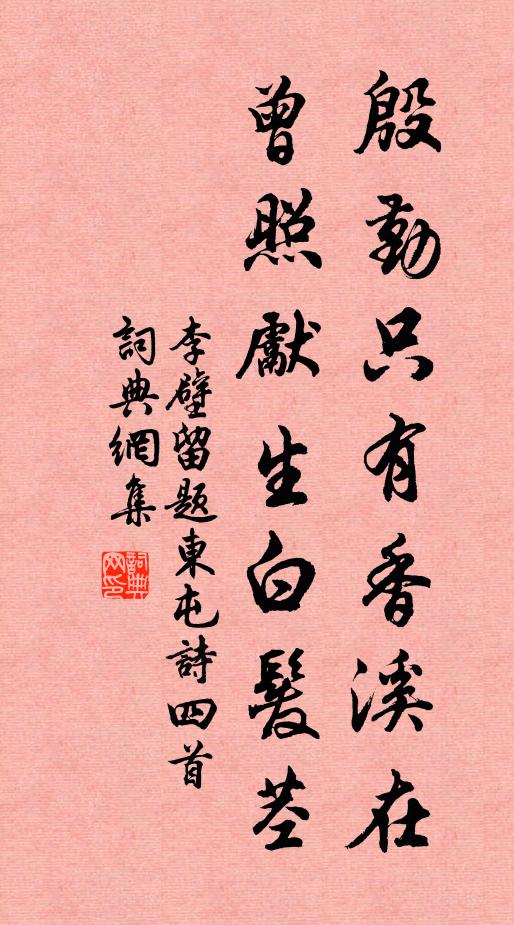 殷勤只有香溪在
曾照獻生白髮莖
李壁留題東屯詩四首
詞典網集
詞典網印